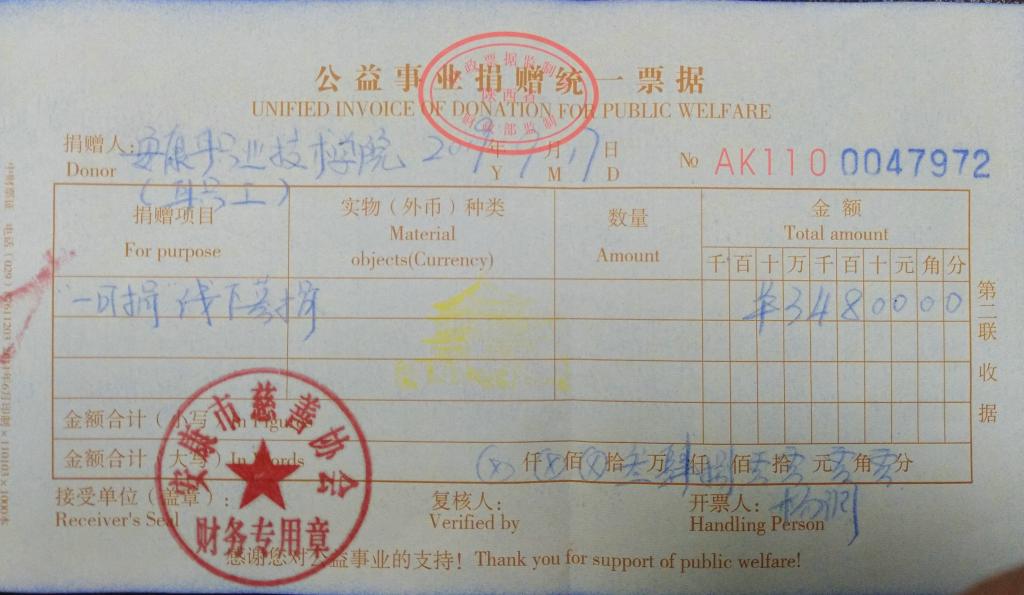 公益事业捐赠统一票据
政票据监制
陕西省
财政部监制
UNIFIED INVOICE OF DONATION FOR PUBLIC WELFARE
捐赠人: 安康职业技术学院 2019年 月17日
Donor Y M D
№ AK110 0047972
(耳号工)
捐赠项目 实物（外币）种类 数量 金额
For purpose Material objects(Currency) Amount Total amount
千 百 十 万 千 百 十 元 角 分
一日捐 线下募捐 ¥3480000
金额合计（小写 In Figu
金额合计（大写）In Words (×)仟(×)佰(×)拾叁万肆仟捌佰零拾零元零角零分
接受单位（盖章）: 复核人: 开票人:
Receiver's Seal Verified by Handling Person
安康市慈善协会
财务专用章
感谢您对公益事业的支持! Thank you for support of public welfare!
第二联 收据